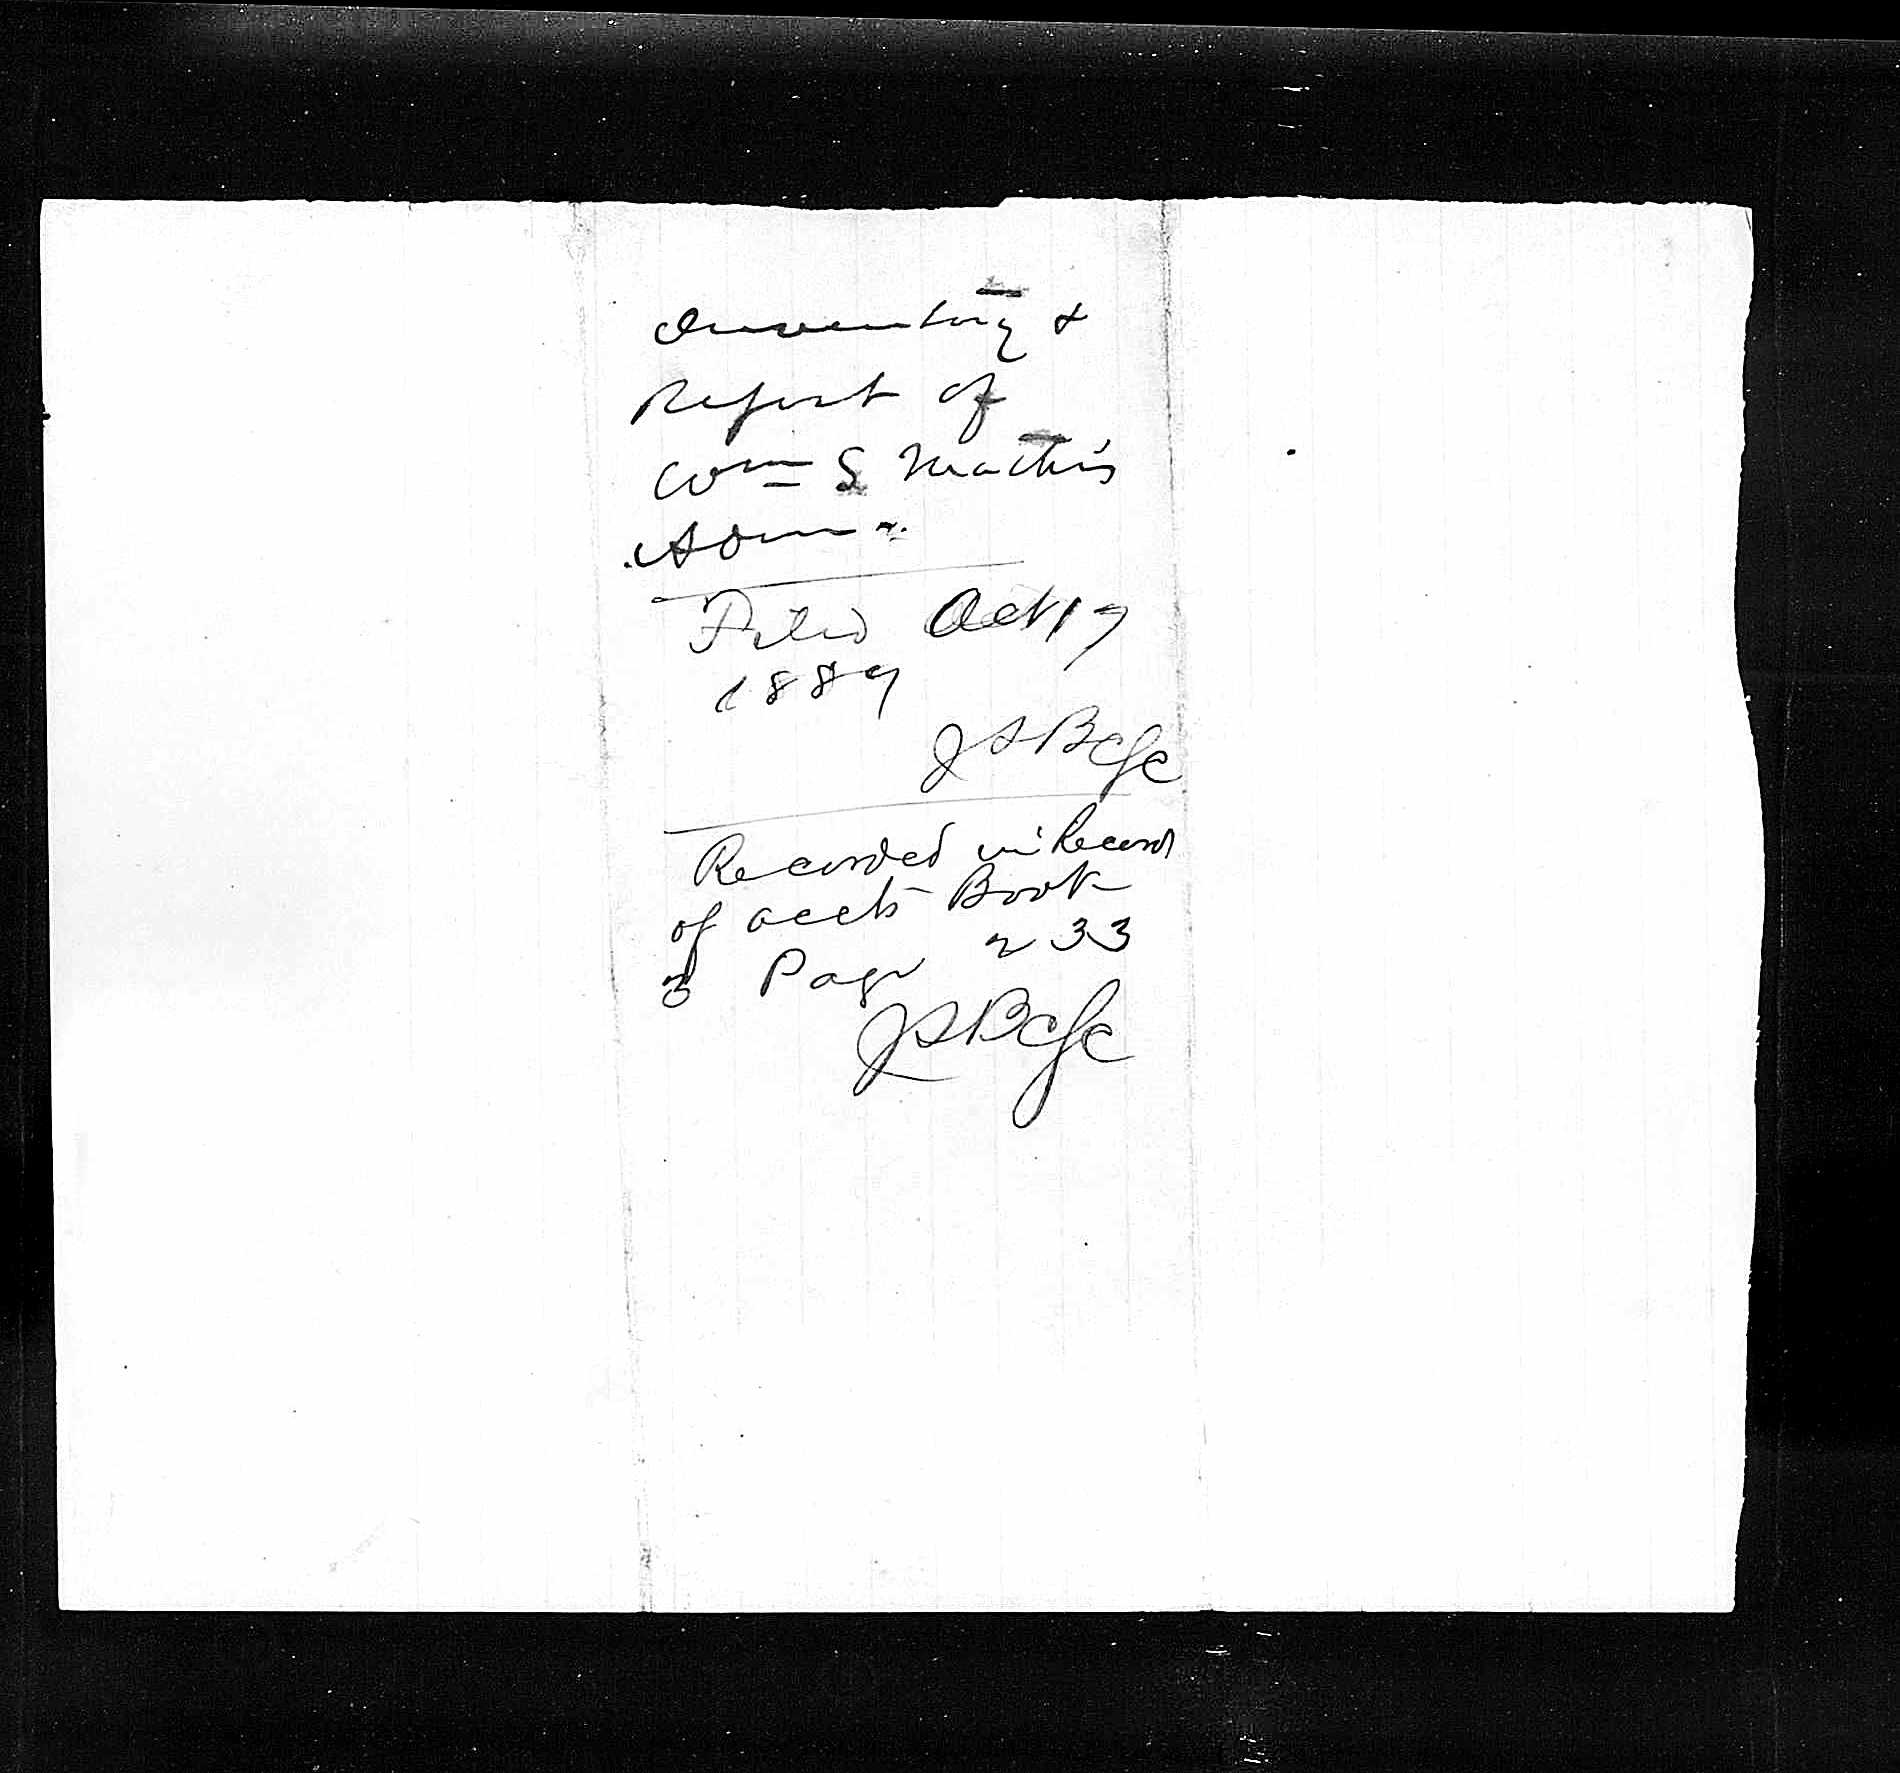 Inventory &
Report of
Wm S Mathis
Admr.
Filed Oct 17
1889
JSBCSC
Recorded in Record
of accts Book
3 Page 233
JSBCSC